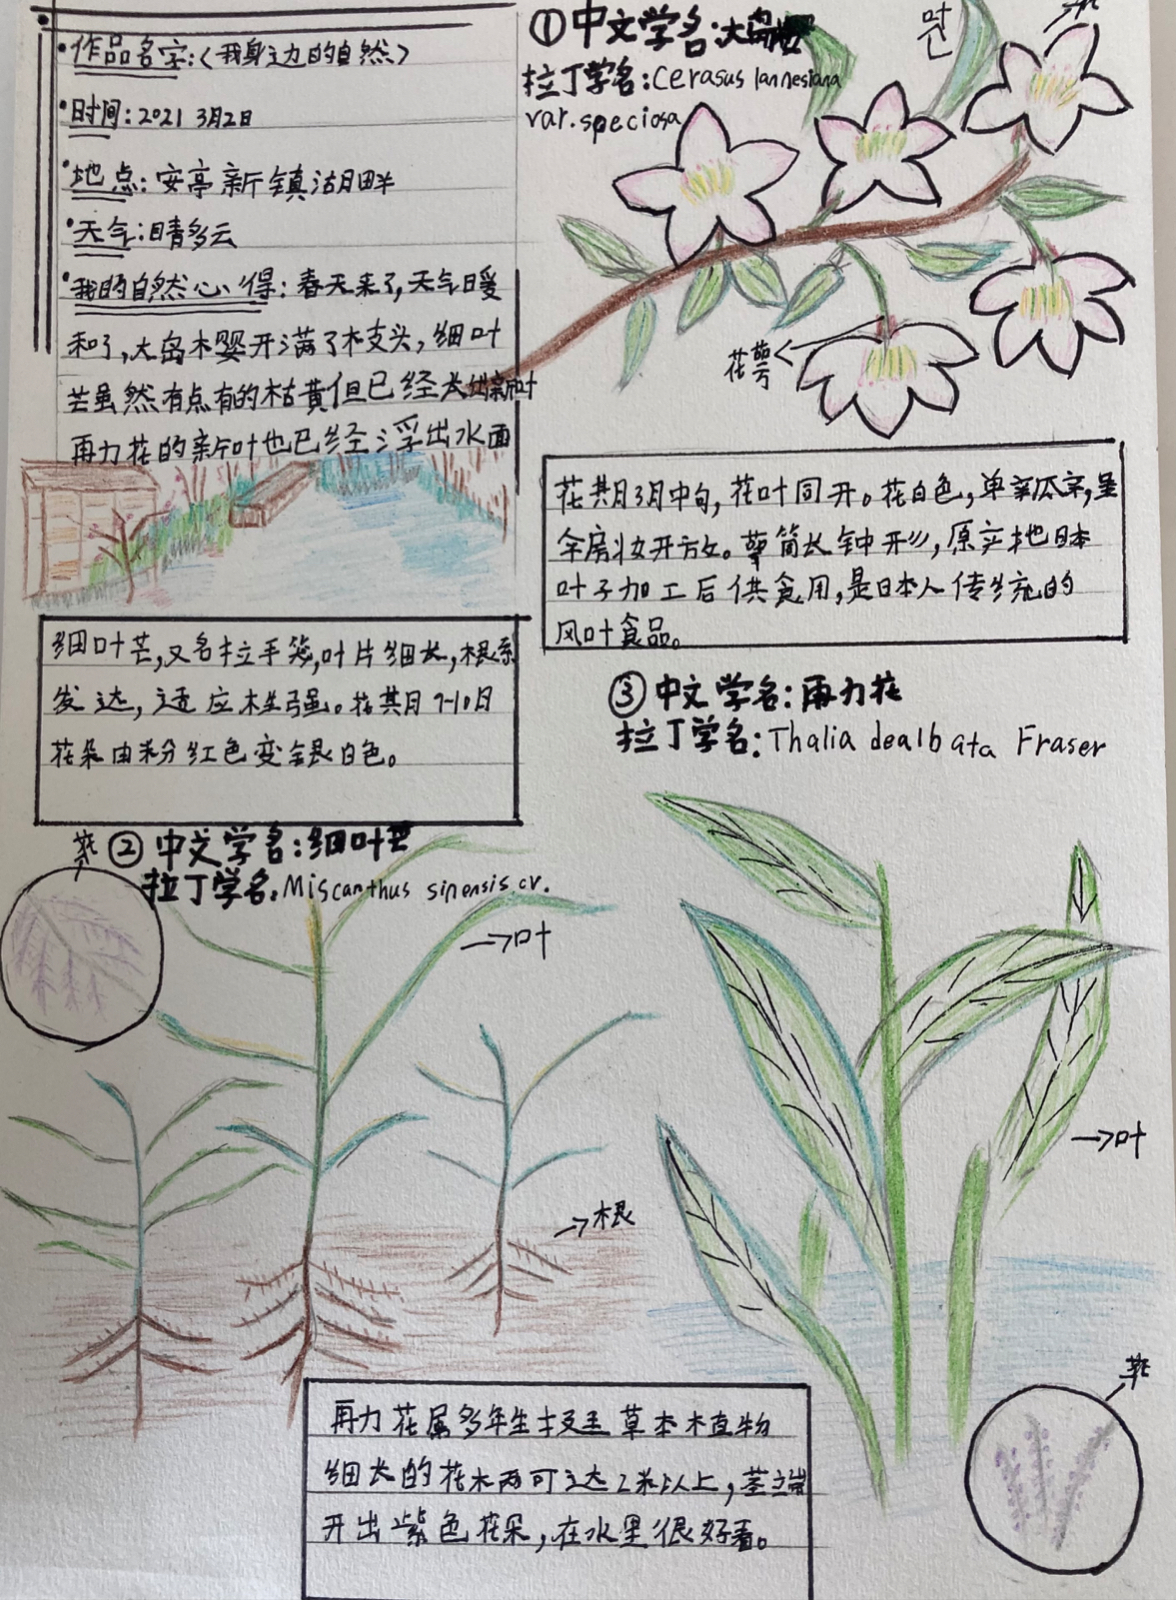 作品名字:《我身边的自然》
时间:2021 3月2日
地点:安亭新镇湖畔
天气:晴多云
我的自然心得:春天来了,天气暖
和了,大岛樱开满了枝头,细叶
芒虽然有点有的枯黄但已经长出新叶
再力花的新叶也已经浮出水面
①中文学名:大岛樱
拉丁学名:Cerasus lannesiana
var.speciosa
叶
花
花萼
花期3月中旬,花叶同开。花白色,单瓣,呈
伞房状开放。萼筒长钟形,原产地日本
叶子加工后供食用,是日本人传统的
风叶食品。
细叶芒,又名拉手笼,叶片细长,根系
发达,适应性强。花期9-10月
花朵由粉红色变银白色。
②中文学名:细叶芒
拉丁学名.Miscanthus sinensis cv.
花
叶
根
③中文学名:再力花
拉丁学名:Thalia dealbata Fraser
叶
花
再力花属多年生挺草本植物
细长的花可达2米以上,茎端
开出紫色花朵,在水里很好看。